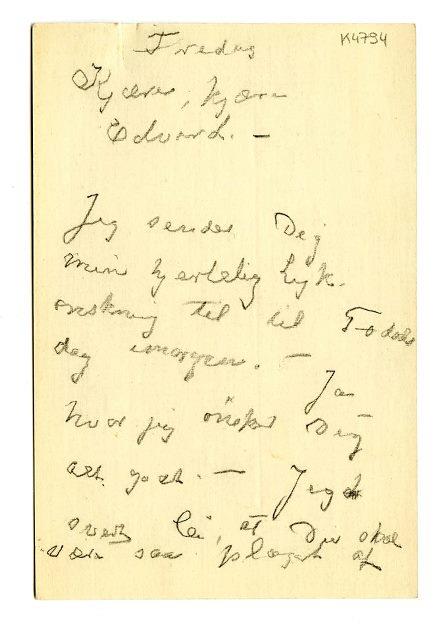 K4794
Fredag
Kjære, kjære
Edvard. —
Jeg sender Dig
min hjertelig Lyk-
ønskning til til Fødsels
dag imorgen. —
Ja
hvor jeg ønsker Dig
alt godt. — Jeg
svært lei, at Du skal
være saa plaget af